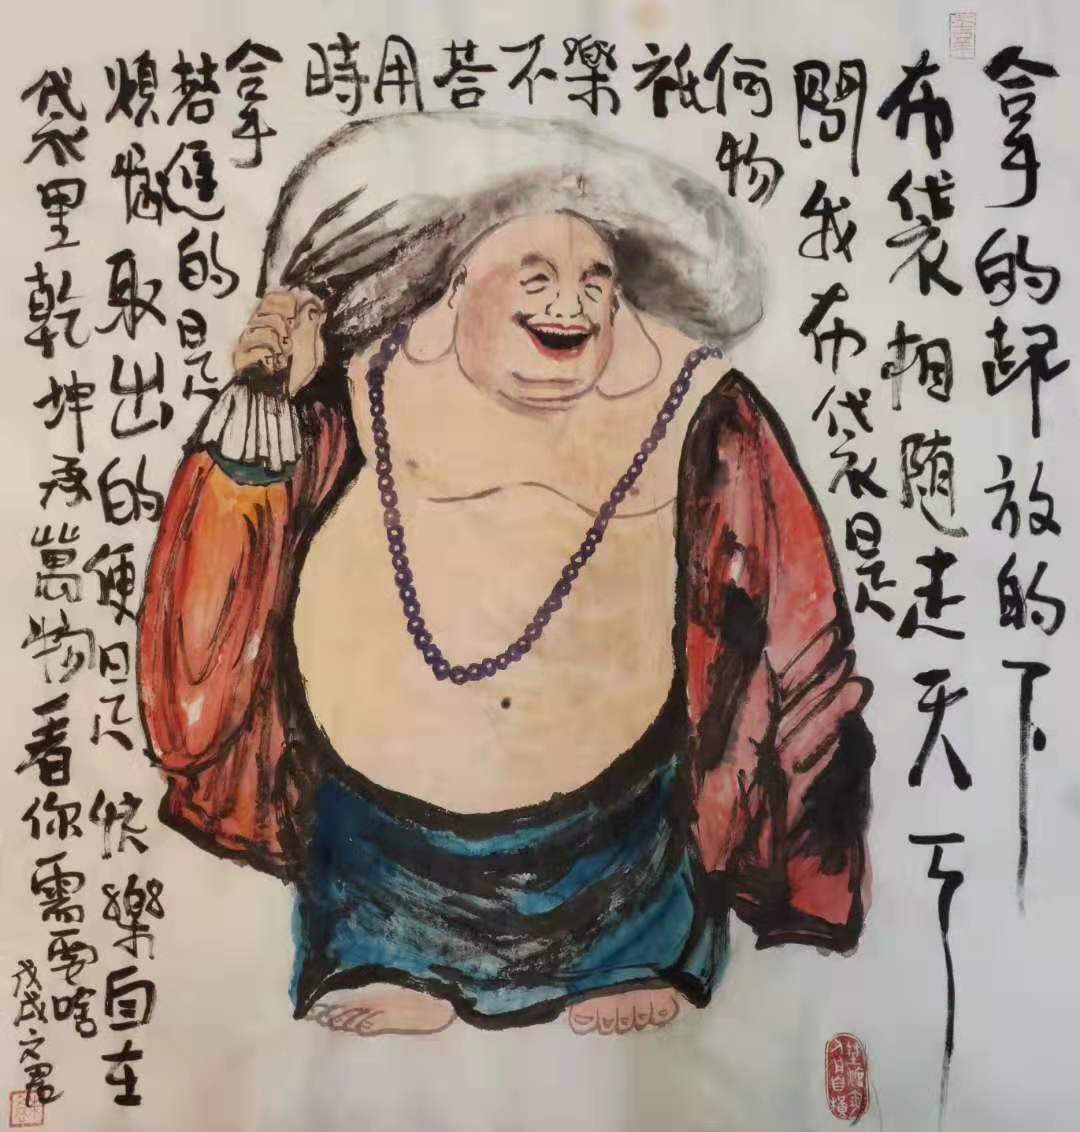 拿的起放的下
布袋相随走天下
問我布袋是
何物
祇樂不荅用時
拿
替進的是
煩惱取出的便是快樂自在
袋里乾坤承萬物看你需要啥
戊戌文君